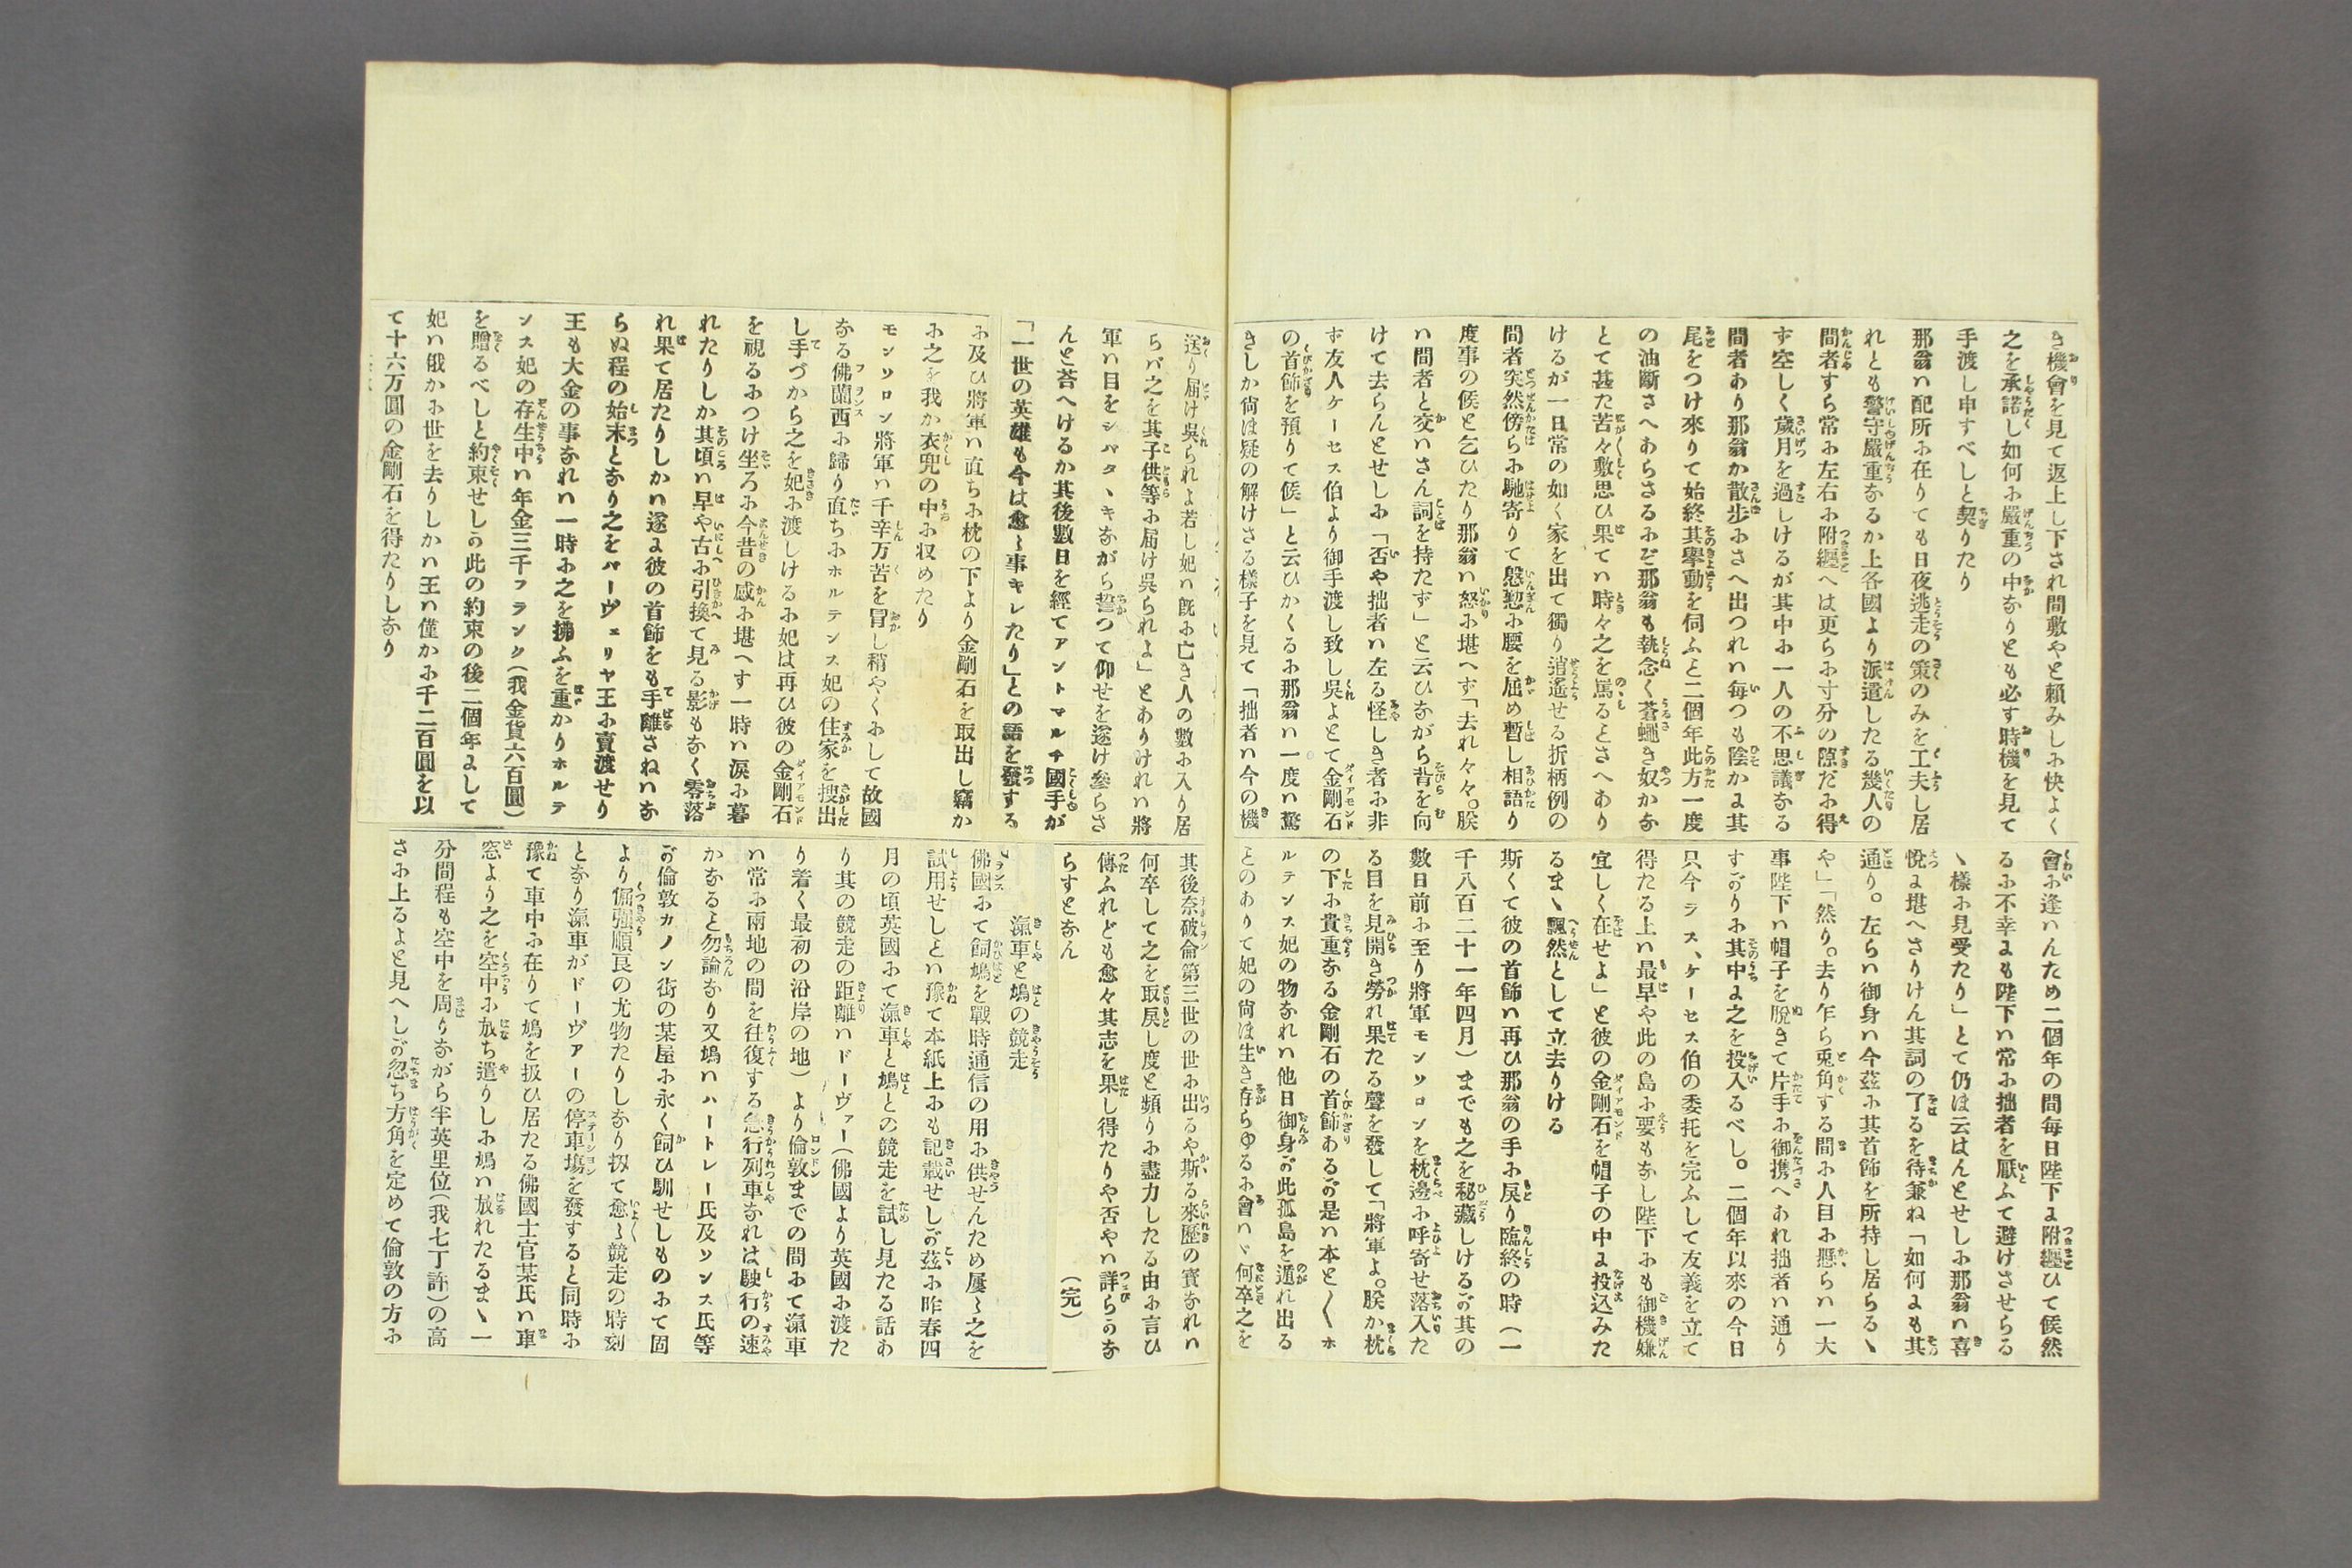 き機會を見て返上し下され間敷やと頼みしに快よく
之を承諾し如何に嚴重の中なりとも必す時機を見て
手渡し申すべしと契りたり
那翁ハ配所に在りても日夜逃走の策のみを工夫し居
れとも警守嚴重なるか上各國より派遣したる幾人の
間者すら常に左右に附纒へは更らに寸分の隙だに得
す空しく歳月を過しけるが其中に一人の不思議なる
間者あり那翁か散歩にさへ出つれハ毎つも陰かに其
尾をつけ來りて始終其擧動を伺ふと二個年此方一度
の油斷さへあらさるにぞ那翁も執念く蒼蠅き奴かな
とて甚た苦々敷思ひ果てハ時々之を罵るとさへあり
けるが一日常の如く家を出て獨り逍遙せる折柄例の
間者突然傍らに馳寄りて慇懃に腰を屈め暫し相語り
度事の候と乞ひたり那翁ハ怒に堪へず「去れ々々。朕
ハ間者と交ハさん詞を持たず」と云ひながら背を向
けて去らんとせしに「否や拙者ハ左る怪しき者に非
ず友人ケーセス伯より御手渡し致し呉よとて金剛石
の首飾を預りて候」と云ひかくるに那翁ハ一度ハ驚
きしか尙は疑の解けさる樣子を見て「拙者ハ今の機
會に逢ハんため二個年の間毎日陛下に附纒ひて候然
るに不幸にも陛下ハ常に拙者を厭ふて避けさせらる
ヽ樣に見受たり」とて仍は云はんとせしに那翁ハ喜
悅に堪へさりけん其詞の了るを待兼ね「如何にも其
通り。左らハ御身ハ今茲に其首飾を所持し居らるヽ
や」「然り。去り乍ら兎角する間に人目に懸らハ一大
事陛下ハ帽子を脫きて片手に御携へあれ拙者ハ通り
すがりに其中に之を投入るべし。二個年以來の今日
只今ラス、ケーセス伯の委托を完ふして友義を立て
得たる上ハ最早や此の島に要もなし陛下にも御機嫌
宜しく在せよ」と彼の金剛石を帽子の中に投込みた
るまヽ飄然として立去りける
斯くて彼の首飾ハ再ひ那翁の手に戾り臨終の時(一
千八百二十一年四月)までも之を秘藏しけるが其の
數日前に至り將軍モンソロンを枕邊に呼寄せ落入た
る目を見開き勞れ果たる聲を發して「將軍よ。朕か枕
の下に貴重なる金剛石の首飾あるが是ハ本と〳〵ホ
ルテンス妃の物なれハ他日御身が此孤島を遁れ出る
とのありて妃の尙は生き存らゆるに會ハヾ何卒之を
送り届け呉られよ若し妃ハ既に亡き人の數に入り居
らバ之を其子供等に届け呉られよ」とありけれハ將
軍ハ目をシバタヽキながら誓つて仰せを遂け參らさ
んと荅へけるか其後數日を經てアントマルチ國手が
「一世の英雄も今は愈〻事キレたり」との語を發する
に及ひ將軍ハ直ちに枕の下より金剛石を取出し竊か
に之を我か衣兜の中に収めたり
モンソロン將軍ハ千辛万苦を冒し稍やくにして故國
なる佛蘭西に歸り直ちにホルテンス妃の住家を搜出
し手づから之を妃に渡しけるに妃は再ひ彼の金剛石
を視るにつけ坐ろに今昔の感に堪へす一時ハ淚に暮
れたりしか其頃ハ早や古に引換て見る影もなく零落
れ果て居たりしかハ遂に彼の首飾をも手離さねハな
らぬ程の始末となり之をバーヴェリヤ王に賣渡せり
王も大金の事なれハ一時に之を拂ふを重かりホルテ
ンス妃の存生中ハ年金三千フランク(我金貨六百圓)
を贈るべしと約束せしが此の約束の後二個年にして
妃ハ俄かに世を去りしかハ王ハ僅かに千二百圓を以
て十六万圓の金剛石を得たりしなり
其後奈破倫第三世の世に出るや斯る來歷の寶なれハ
何卒して之を取戾し度と頻りに盡力したる由に言ひ
傳ふれども愈々其志を果し得たりや否やハ詳らかな
らすとなん
(完)
滊車と鳩の競走
佛國にて飼鳩を戰時通信の用に供せんため屢〻之を
試用せしとハ豫て本紙上にも記載せしが茲に昨春四
月の頃英國にて滊車と鳩との競走を試し見たる話あ
り其の競走の距離ハドーヴァー(佛國より英國に渡た
り着く最初の沿岸の地)より倫敦までの間にて滊車
ハ常に兩地の間を往復する急行列車なれは駛行の速
かなると勿論なり又鳩ハハートレー氏及ソンス氏等
が倫敦カノン街の某屋に永く飼ひ馴せしものにて固
より倔强順良の尤物たりしなり扨て愈〻競走の時刻
となり滊車がドーヴァーの停車塲を發すると同時に
豫て車中に在りて鳩を扱ひ居たる佛國士官某氏ハ車
窓より之を空中に放ち遣りしに鳩ハ放れたるまヽ一
分間程も空中を周りながら半英里位(我七丁許)の高
さに上るよと見へしが忽ち方角を定めて倫敦の方に